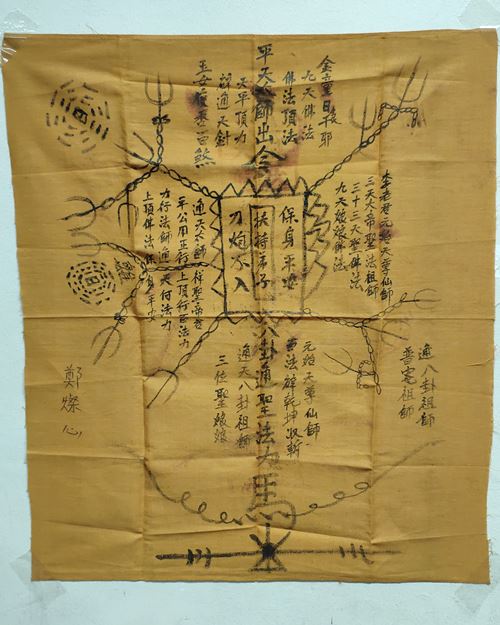 金童
九天佛法
佛法頂法
平天大師出令
天平頂力
通天針
玉女
李老君元始天尊仙師
三天大帝聖法祖師
三十三天聖佛法
九天娘娘佛法
保身平安
扶持弟子
刀炮不入
聖帝君
平公用正行上頂行正法力
力行法師通天付法力
上頂佛法保身平安
通八卦祖師
普庵祖師
元始天尊仙師
法碎乾坤
八卦通聖法力馬
通天八卦祖師
三位聖娘娘
鄭燦心